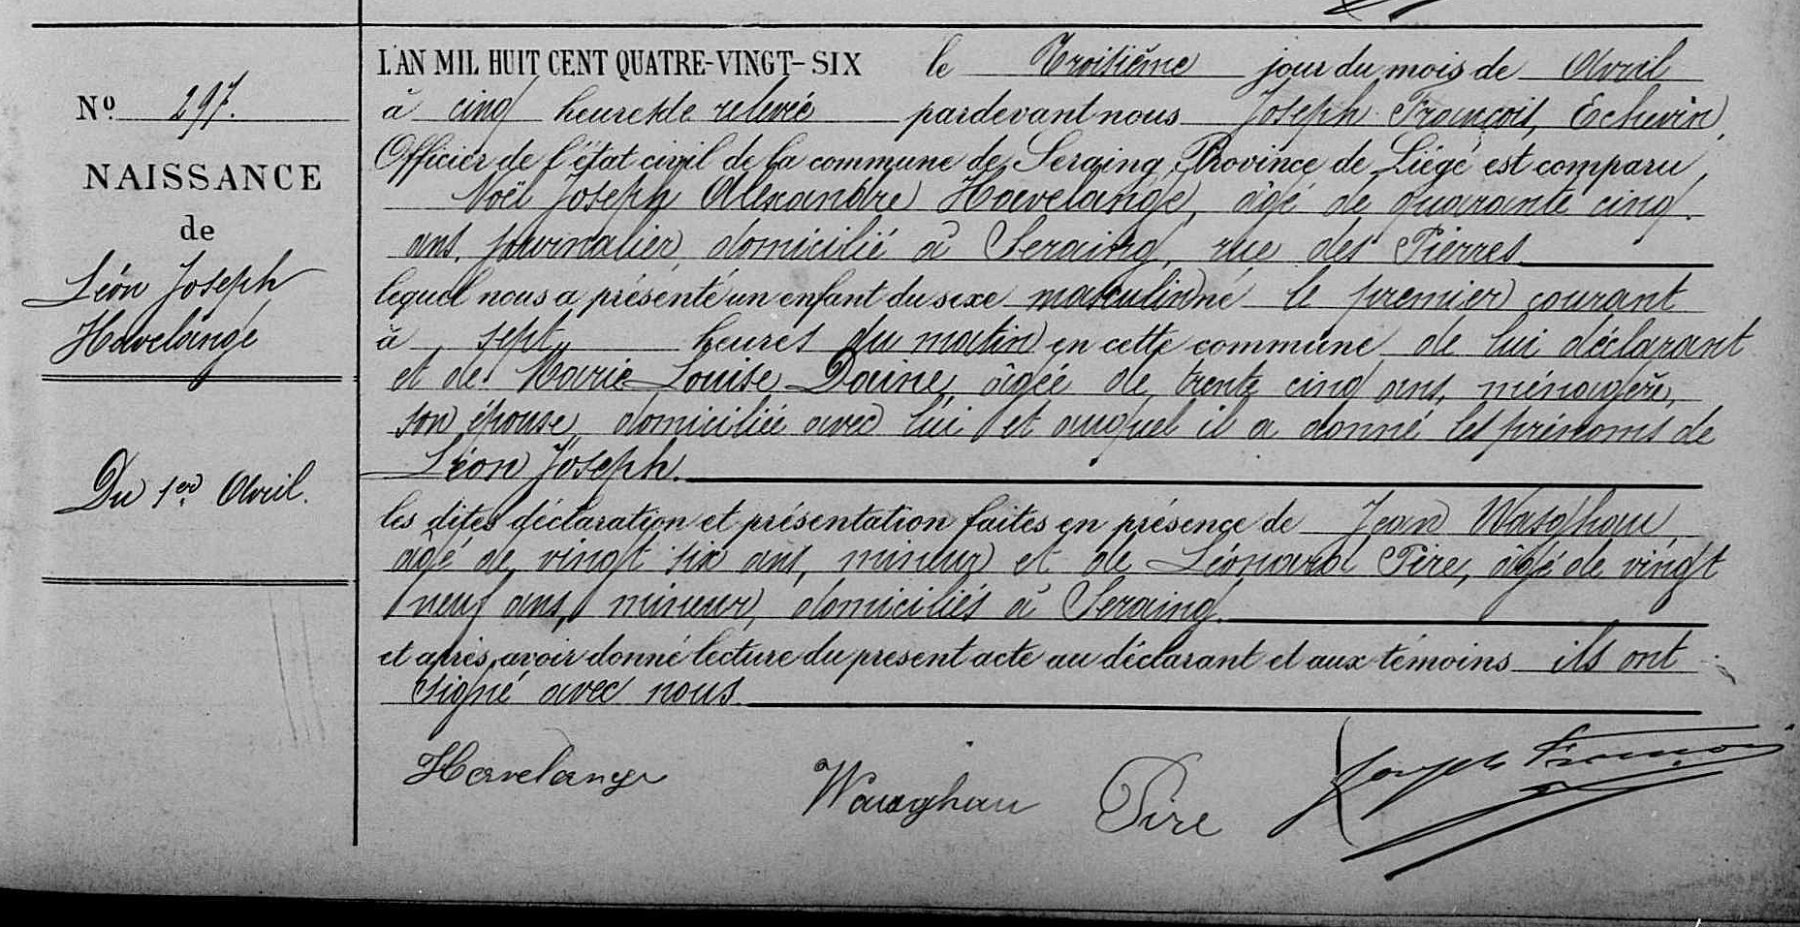 N° 297.
NAISSANCE
de
Léon Joseph
Havelange
Du 1er Avril.
L'AN MIL HUIT CENT QUATRE-VINGT-SIX le Troisième jour du mois de Avril
à cinq heures de relevée pardevant nous Joseph François, Echevin,
Officier de l'état civil de la commune de Seraing, Province de Liége est comparu
Noël Joseph Alexandre Havelange, âgé de quarante cinq
ans, journalier, domicilié à Seraing, rue des Pierres
lequel nous a présenté un enfant du sexe masculin né le premier courant
à sept heures du matin en cette commune de lui déclarant
et de Marie Louise Daine, âgée de trente cinq ans, ménagère,
son épouse, domiciliée avec lui et auquel il a donné les prénoms de
Léon Joseph.
les dites déclaration et présentation faites en présence de Jean
âgé de vingt six ans, mineur et de Léonard Pire, âgé de vingt
neuf ans, mineur, domiciliés à Seraing.
et après avoir donné lecture du present acte au déclarant et aux témoins ils ont
signé avec nous.
Havelange Pire Joseph François